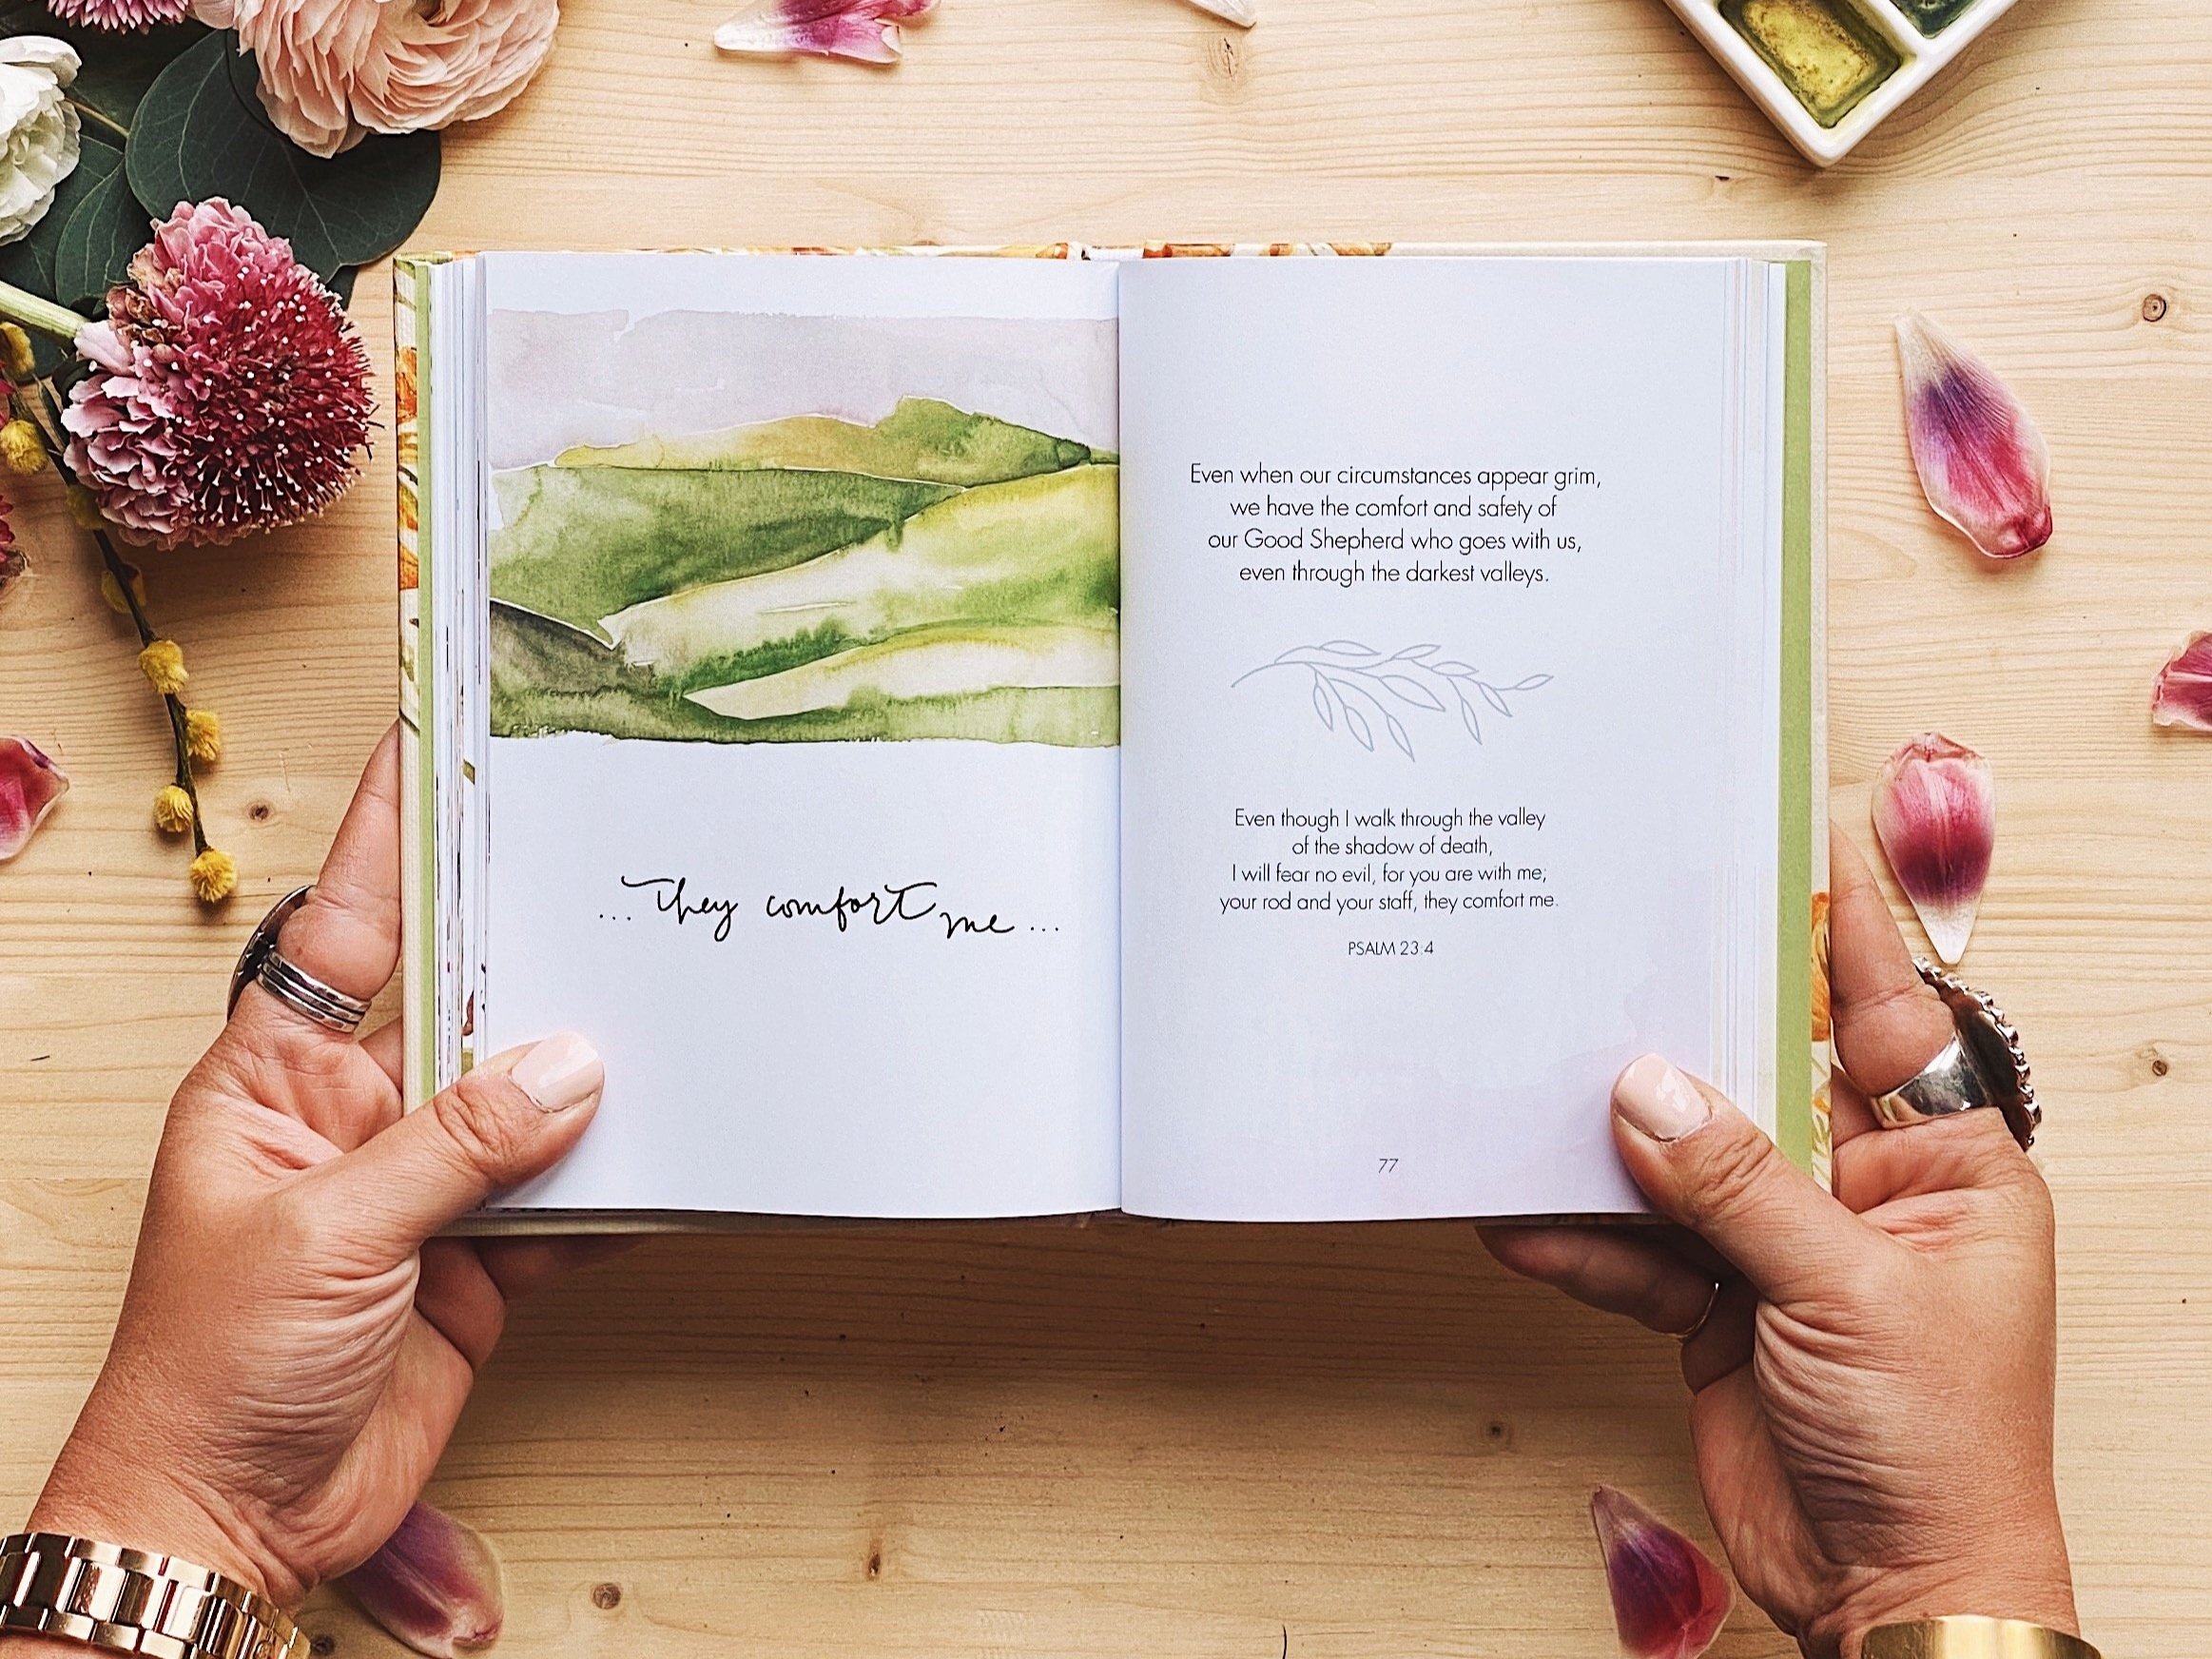 ... they comfort me ...
Even when our circumstances appear grim,
we have the comfort and safety of
our Good Shepherd who goes with us,
even through the darkest valleys.
Even though I walk through the valley
of the shadow of death,
I will fear no evil, for you are with me;
your rod and your staff, they comfort me.
PSALM 23:4
77